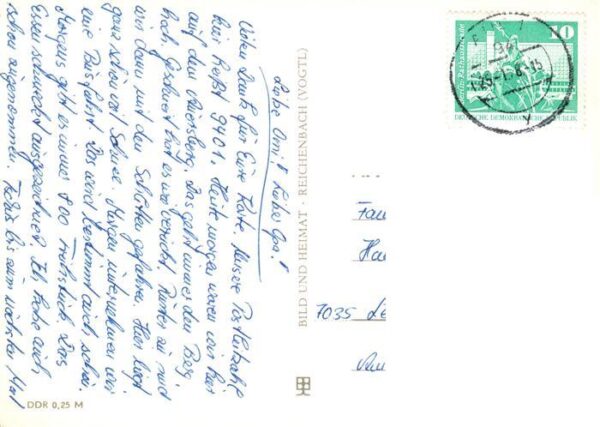 Liebe Omi! Liebe Opa!
Vielen Dank für Eure Karte. Unsere Postleitzahl
hier heißt 9401. Heute morgen waren wir hier
auf den Auersberg. Da geht immer der Berg
hoch. Geschneit hat es wie verrückt. Runter sind
wir dann mit den Schlitten gefahren. Hier liegt
ganz schön viel Schnee. Morgen unternehmen wir
eine Busfahrt. Das wird bestimmt auch schön.
Morgens gibt es immer 8.00 Frühstück. Das
Essen schmeckt ausgezeichnet. Ich habe auch
schon zugenommen. bis zum nächsten Mal
DDR 0,25 M
BILD UND HEIMAT · REICHENBACH (VOGTL)
10
DEUTSCHE DEMOKRATISCHE REPUBLIK
Fam
7035 Le